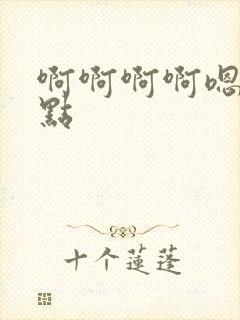 啊啊啊啊嗯
點
十个蓮蓬